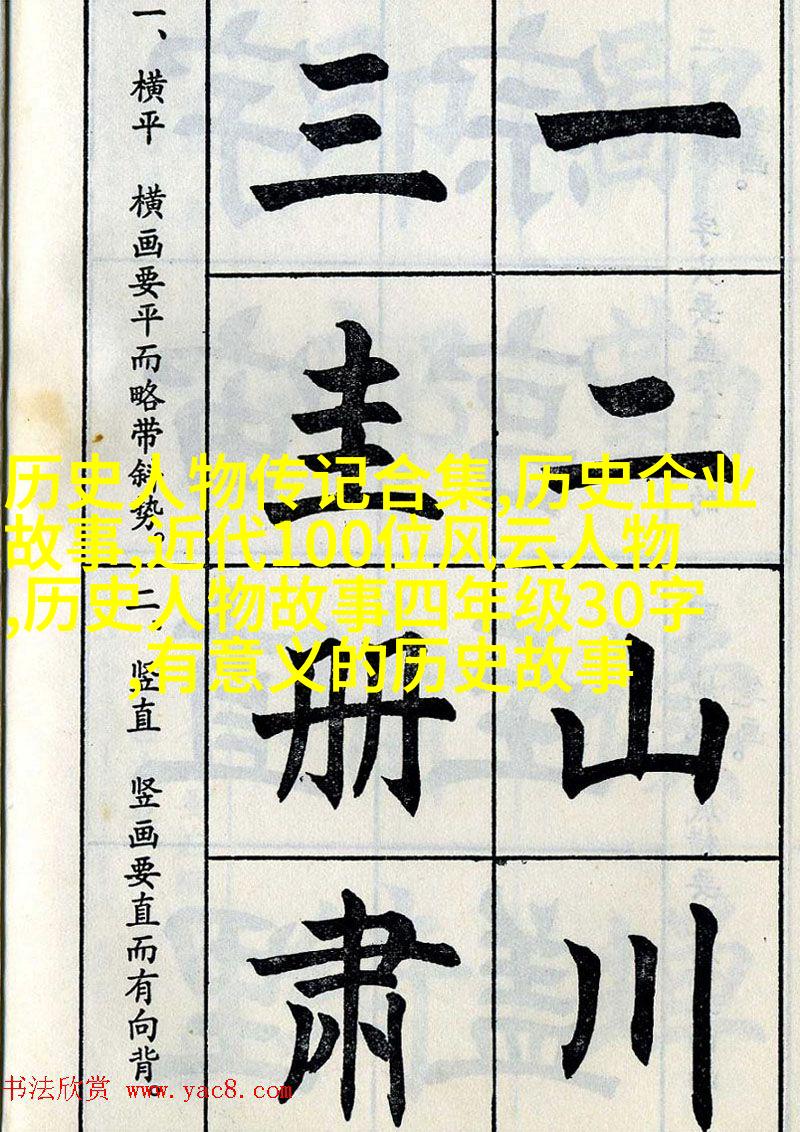 一
二
山
川
三
圭
册
肃
一、横平 横画要平而略带斜势。二、竖直 竖画要直而有向背。
历史人物传记合集,历史企业
故事,近代100位风云人物
,历史人物故事四年级30字
,有意义的历史故事
书法欣赏 www.yac8.com